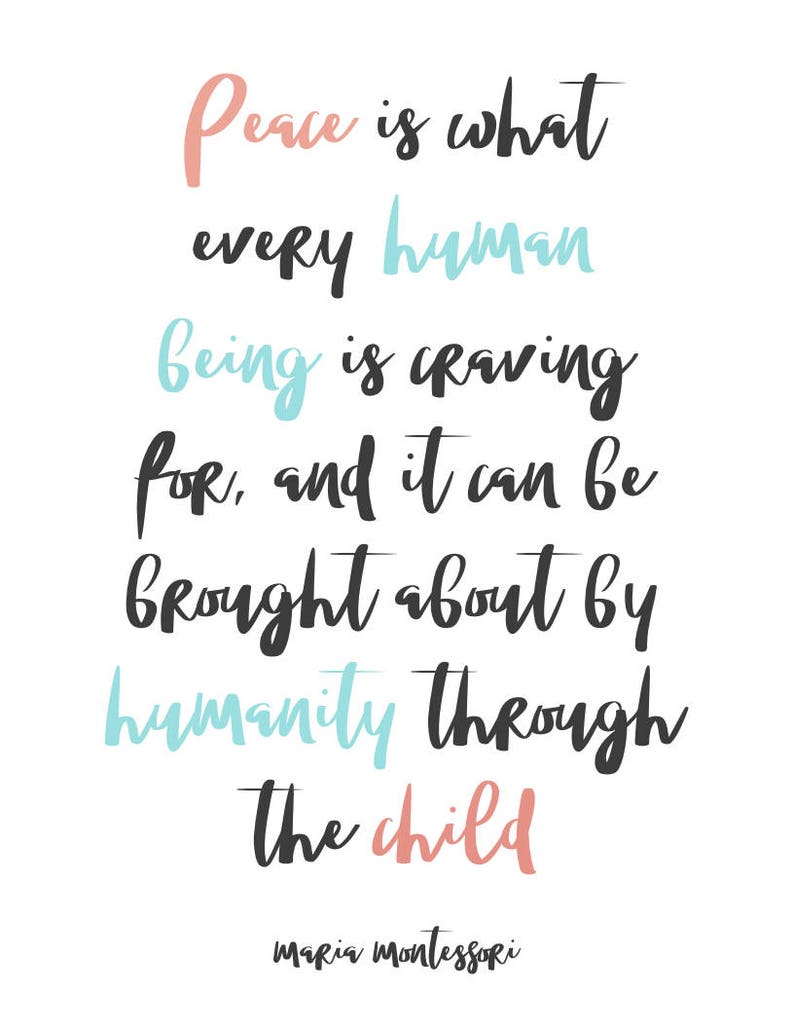 Peace is what
every human
being is craving
for, and it can be
brought about by
humanity through
the child
Maria Montessori